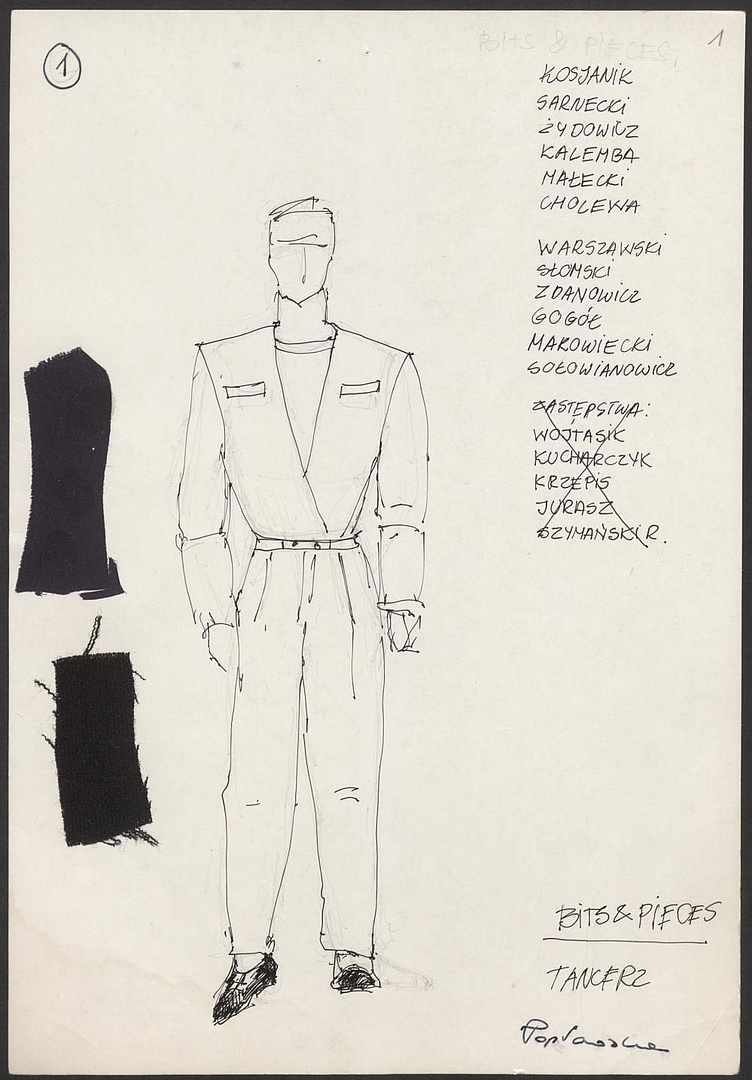 1
BITS & PIECES,
1
KOSJANIK
SARNECKI
ŻYDOWICZ
KALEMBA
MAŁECKI
CHOLEWA
WARSZAWSKI
SŁOMSKI
ZDANOWICZ
GOGÓŁ
MAKOWIECKI
SOŁOWIANOWICZ
ZASTĘPSTWA:
WOJTASIK
KUCHARCZYK
KRZEPIS
JURASZ
SZYMAŃSKI R.
BITS & PIECES
TANCERZ